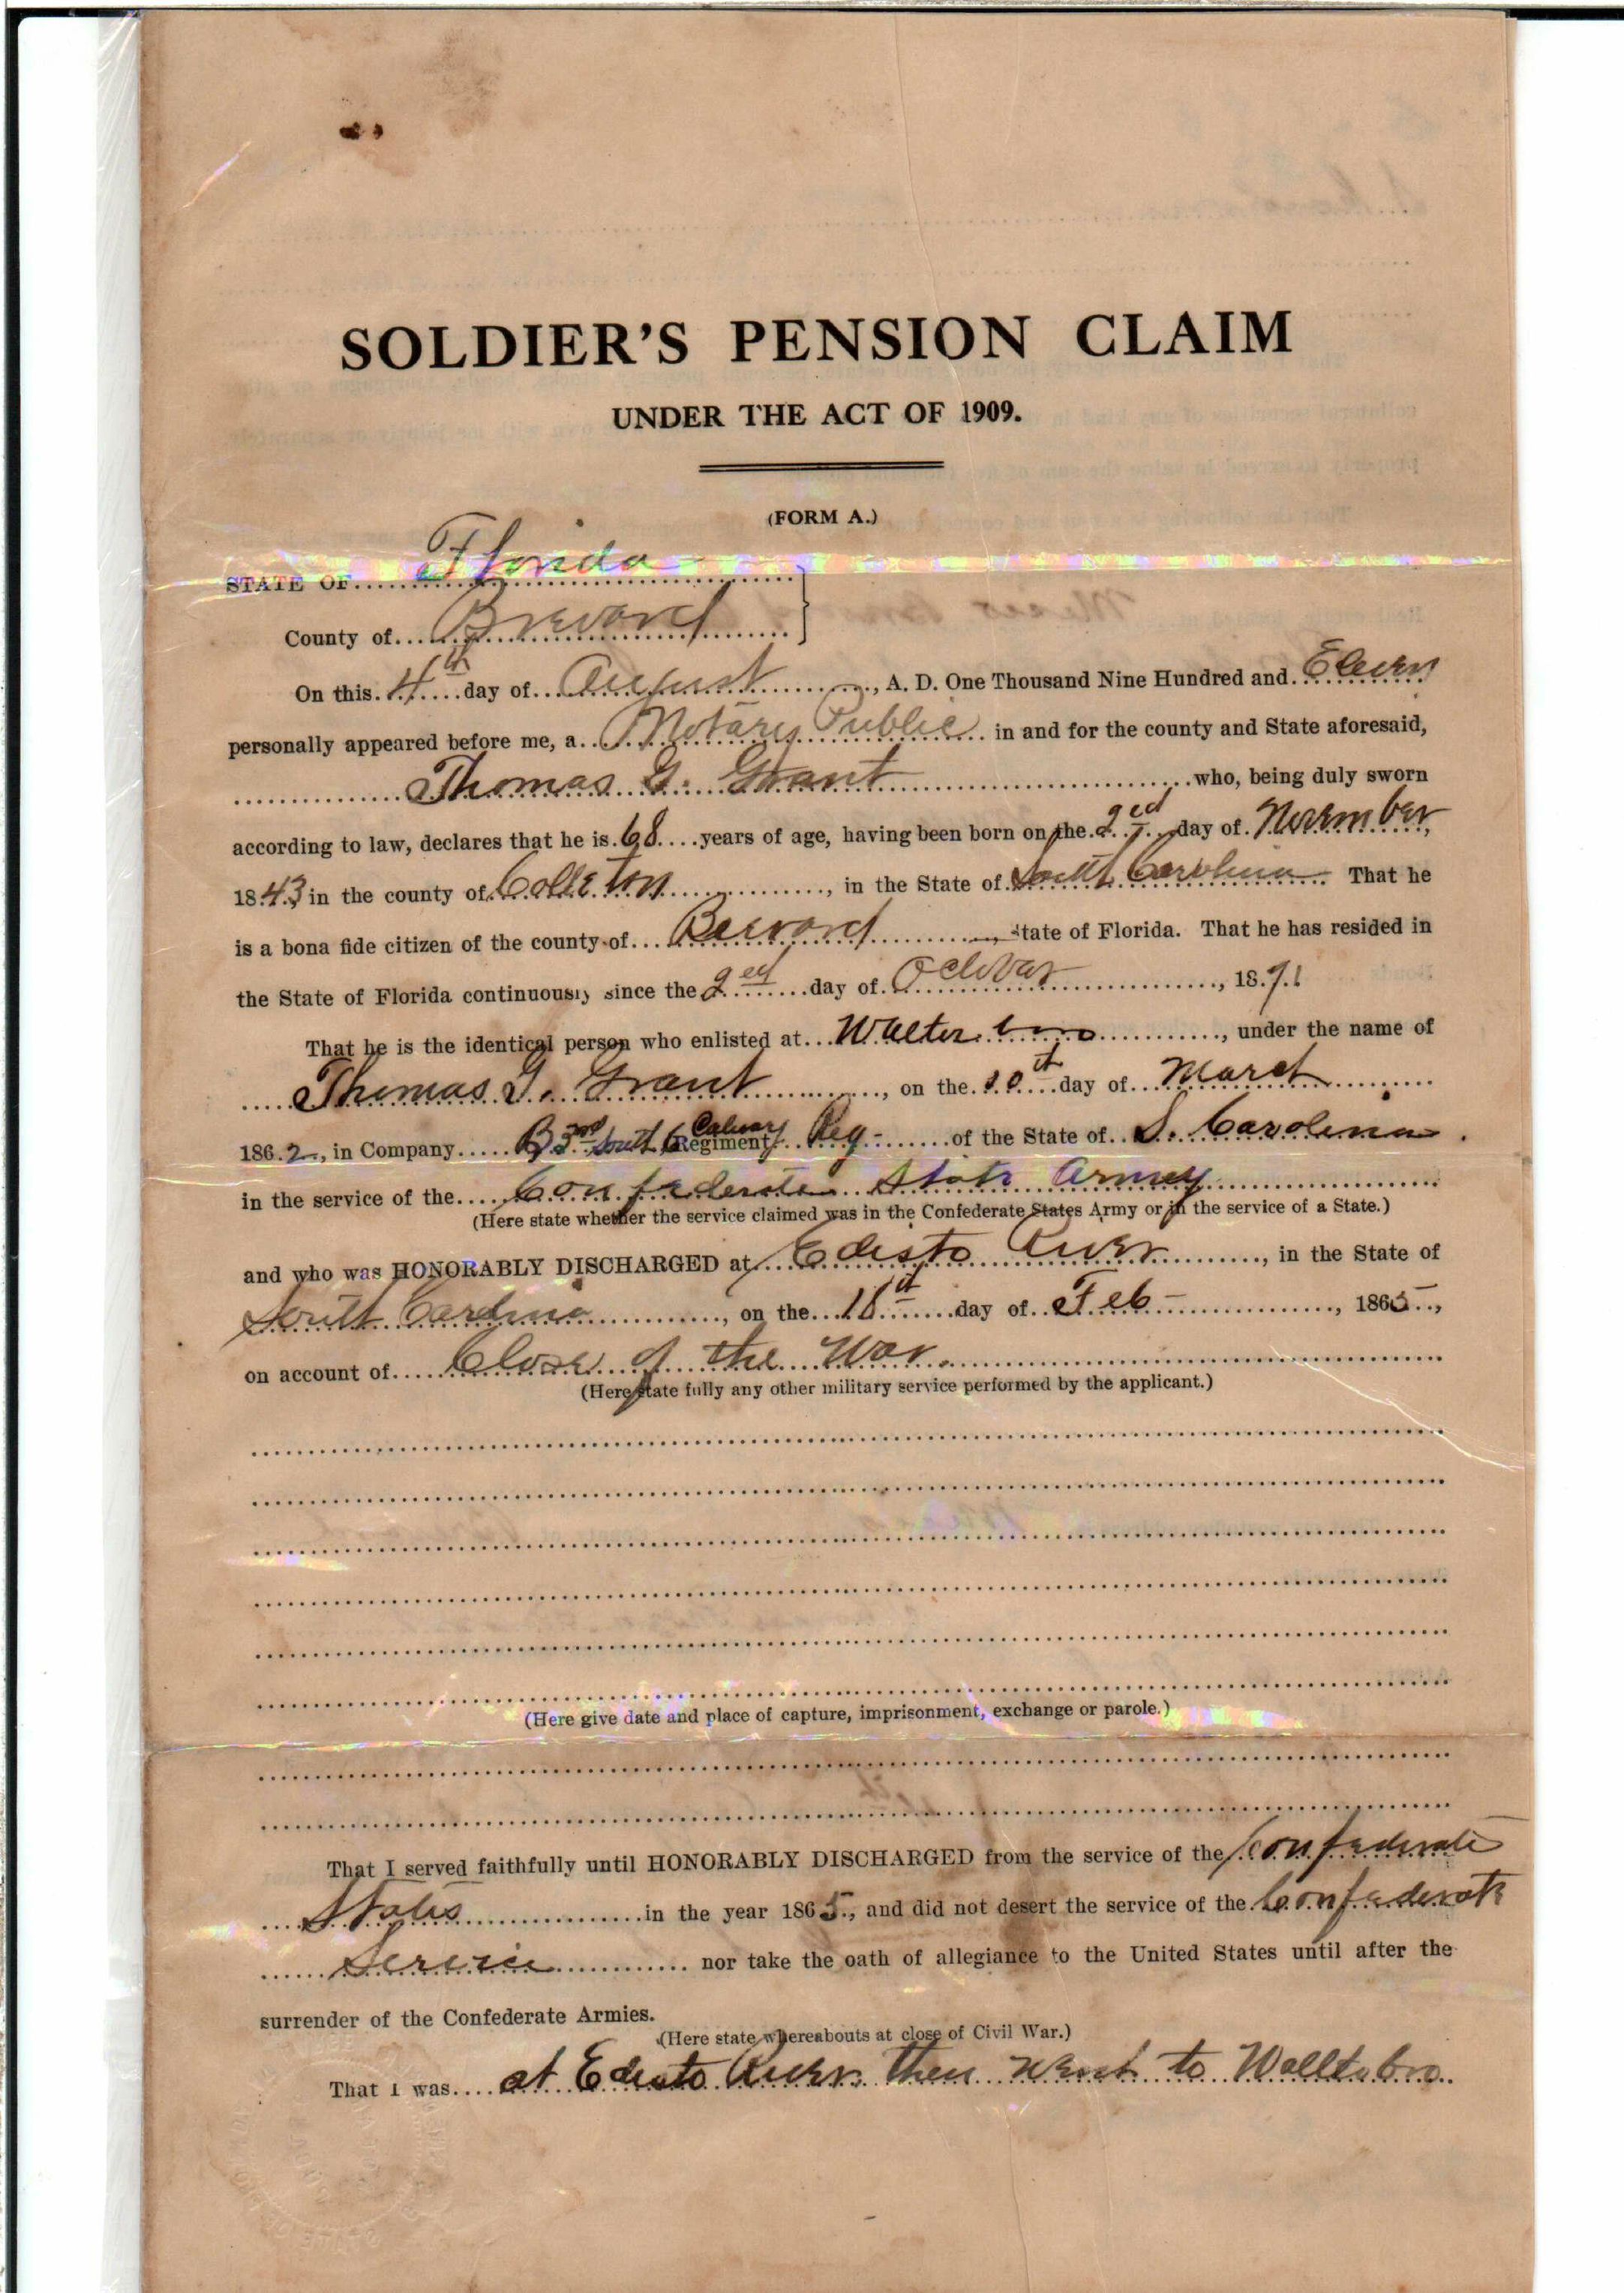 SOLDIER'S PENSION CLAIM
UNDER THE ACT OF 1909.
(FORM A.)
STATE OF Florida
County of Brevard
On this 4th day of August, A. D. One Thousand Nine Hundred and Eleven
personally appeared before me, a Notary Public in and for the county and State aforesaid,
Thomas G. Grant who, being duly sworn
according to law, declares that he is 68 years of age, having been born on the 2ed day of November
1843, in the county of Colleton, in the State of South Carolina That he
is a bona fide citizen of the county of Brevard, State of Florida. That he has resided in
the State of Florida continuously since the 2ed day of October, 1891
That he is the identical person who enlisted at Walterboro, under the name of
Thomas G. Grant, on the 10th day of March
1862, in Company B 3rd South C Calvary Regiment Reg - of the State of S. Carolina.
in the service of the Confederate State Army
(Here state whether the service claimed was in the Confederate States Army or in the service of a State.)
and who was HONORABLY DISCHARGED at Edisto River, in the State of
South Carolina, on the 18th day of Feb -, 1865,
on account of Close of the War.
(Here state fully any other military service performed by the applicant.)
(Here give date and place of capture, imprisonment, exchange or parole.)
That I served faithfully until HONORABLY DISCHARGED from the service of the Confederate
States in the year 1865, and did not desert the service of the Confederate
Service nor take the oath of allegiance to the United States until after the
surrender of the Confederate Armies.
(Here state whereabouts at close of Civil War.)
That I was at Edisto River then went to Walterboro.